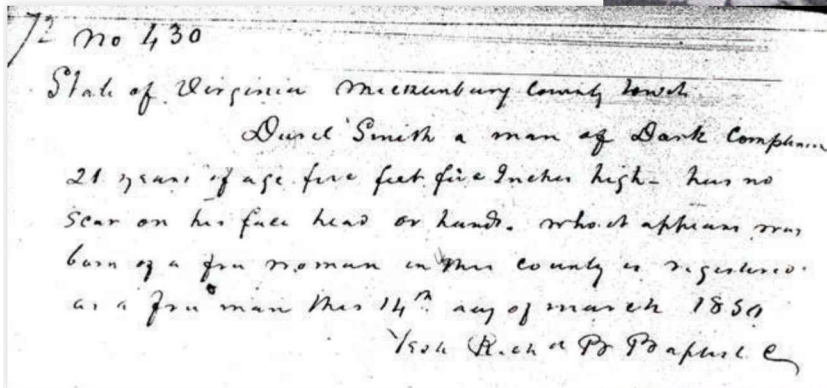 72 No 430
State of Virginia Mecklenburg County Towit
Smith a man of Dark Complexion
21 years of age five feet five Inches high - has no
scar on his face head or hands. who it appears was
born of a free woman in this county is registered
as a free man this 14th day of March 1850
Teste Richd B Baptist C